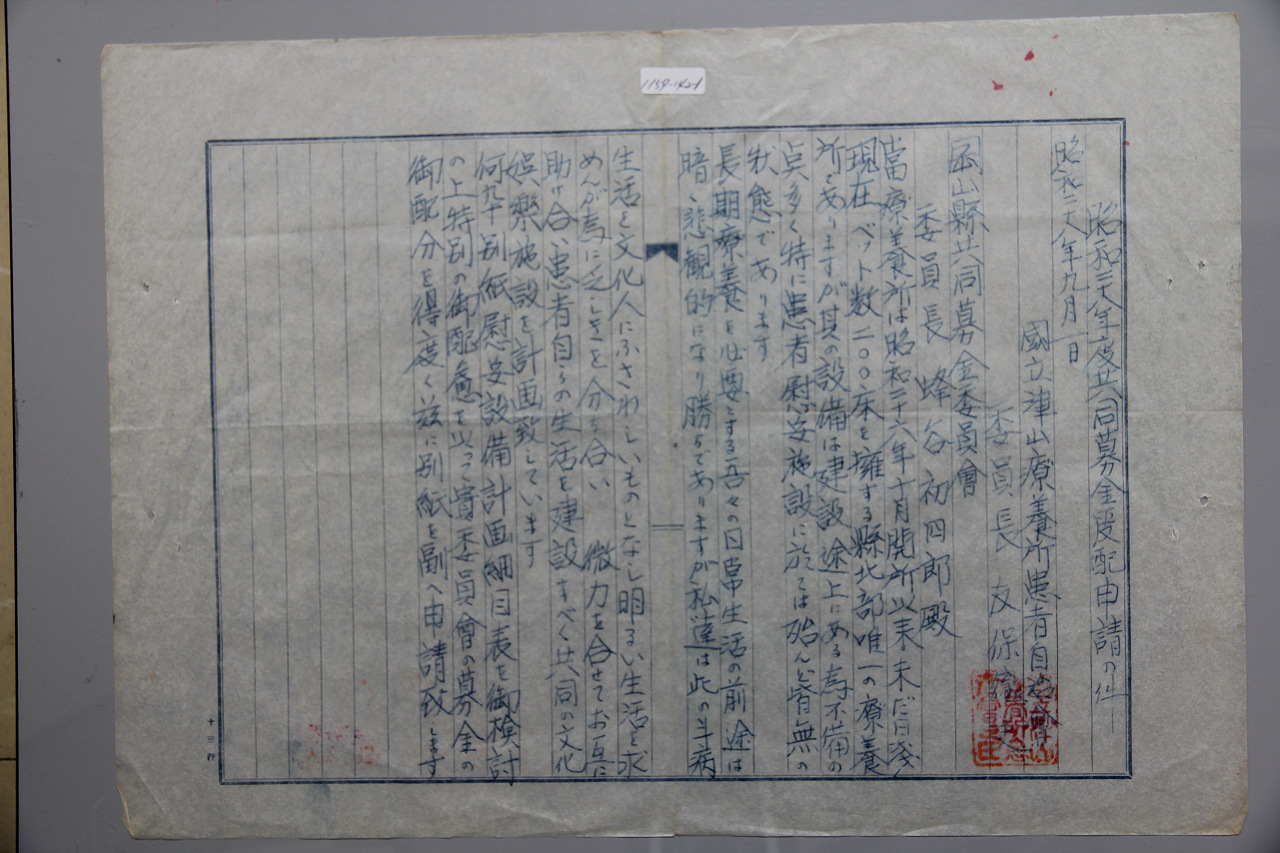 1159-142-1
昭和二十八年度共同募金受配申請の件
昭和二十八年九月一日
國立津山療養所患者自治會
委員長 友保
岡山縣共同募金委員會
委員長 蜂谷初四郎殿
當療養所は昭和二十六年十月開所以来未だ日浅く
現在ベット数二〇〇床を擁する縣北部唯一の療養
所でありますが其の設備は建設途上にある為不備の
点多く特に患者慰安施設に於ては殆んど皆無の
状態であります
長期療養を必要とする吾々の日常生活の前途は
暗く悲観的になり勝ちでありますが私達は此の斗病
生活を文化人にふさわしいものとなし明るい生活を求
めんが為に乏しきを分ち合い 微力を合せてお互に
助け合い患者自らの生活を建設すべく共同の文化
娯楽施設を計画致しています
何卆別紙慰安設備計画細目表を御検討
の上特別の御配慮を以って貴委員會の募金の
御配分を得度く玆に別紙を副へ申請致します
十三行